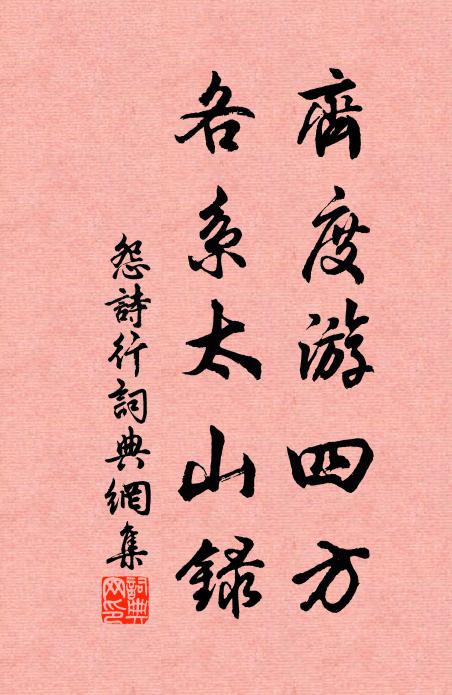 齊度游四方
各系太山錄
怨詩行詞典網集
詞典網印